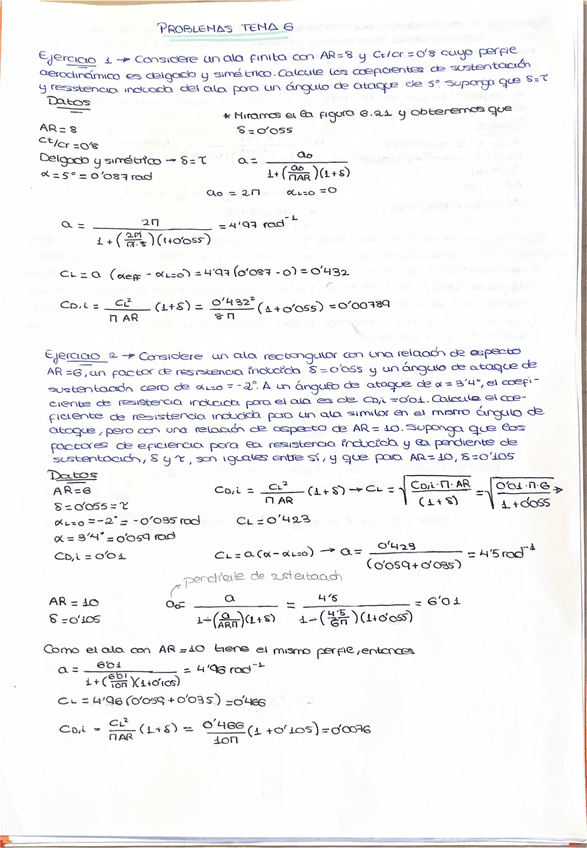 PROBLEMAS TEMA 6
Ejercicio 1 → Considere un ala finita con AR=8 y Ct/cr=0'8 cuyo perfil
aerodinámico es delgado y simétrico. Calcule los coeficientes de sustentación
y resistencia inducida del ala para un ángulo de ataque de 5º. Suponga que δ=τ
Datos
* Miramos el la figura 6.21 y obtenemos que
δ=0'055
AR=8
Ct/cr=0'8
Delgado y simétrico → δ=τ
α=5º=0'087rad
a = a0 / 1+(a0/ΠAR)(1+δ)
a0 = 2Π αL=0 = 0
a = 2Π / 1+(2Π/Π·8)(1+0'055) = 4'97 rad⁻¹
CL = a (αeff - αL=0) = 4'97(0'087-0) = 0'432
CD,i = CL²/Π AR (1+δ) = 0'432²/8Π (1+0'055) = 0'00789
Ejercicio 2 → Considere un ala rectangular con una relación de aspecto
AR=6, un factor de resistencia inducida δ=0'055 y un ángulo de ataque de
sustentación cero de αL=0=-2º. A un ángulo de ataque de α=3'4º, el coefi-
ciente de resistencia inducida para el ala es de CD,i=0'01. Calcule el coe-
ficiente de resistencia inducida para un ala similar en el mismo ángulo de
ataque, pero con una relación de aspecto de AR=10. Suponga que los
factores de eficiencia para la resistencia inducida y la pendiente de
sustentación, δ y τ, son iguales entre sí, y que para AR=10, δ=0'105
Datos
AR=6
δ=0'055=τ
αL=0=-2º=-0'035rad
α=3'4º=0'059rad
CD,i=0'01
CD,i = CL²/Π AR (1+δ) → CL = √(CD,i·Π·AR/(1+δ)) = √(0'01·Π·6/1+0'055) →
CL=0'423
CL=a(α-αL=0) → a = 0'423/(0'059+0'035) = 4'5rad⁻¹
pendiente de sustentación
AR=10
δ=0'105
a0= a / 1-(a/ARΠ)(1+δ) = 4'5 / 1-(4'5/6Π)(1+0'055) = 6'01
Como el ala con AR=10 tiene el mismo perfil, entonces
a = 6'01 / 1+(6'01/10Π)(1+0'105) = 4'96 rad⁻¹
CL = 4'96(0'059+0'035) = 0'466
CD,i = CL²/ΠAR (1+δ) = 0'466/10Π (1+0'105) = 0'0076